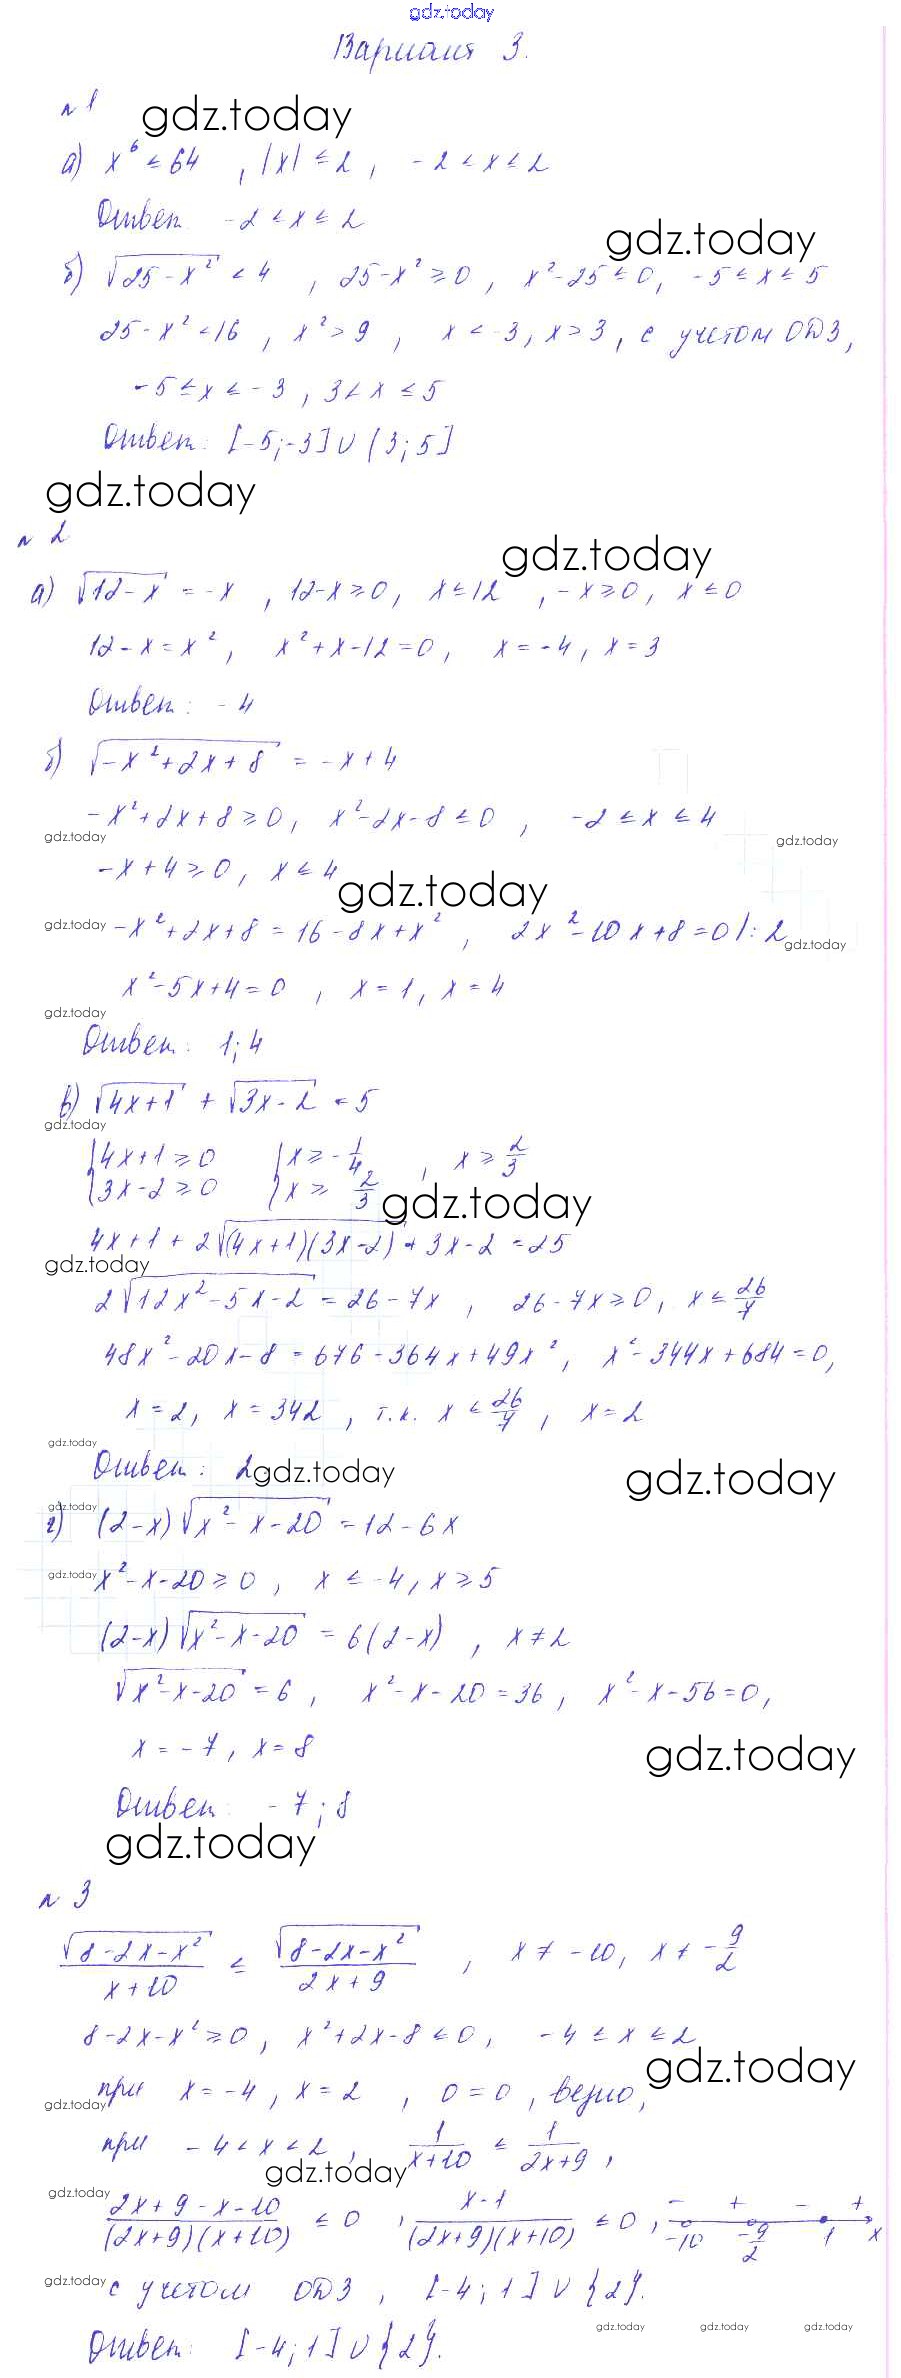 gdz.today
Вариант 3.
№1
gdz.today
а) x⁶ ≤ 64 , |x| ≤ 2 , -2 ≤ x ≤ 2
Ответ: -2 ≤ x ≤ 2
gdz.today
б) √(25-x²) < 4 , 25-x² ≥ 0 , x²-25 ≤ 0, -5 ≤ x ≤ 5
25-x² < 16 , x² > 9 , x < -3, x > 3 , с учетом ОДЗ,
-5 ≤ x < -3 , 3 < x ≤ 5
Ответ: [-5;-3] ∪ (3;5]
gdz.today
№ 2
gdz.today
а) √(12-x) = -x , 12-x ≥ 0, x ≤ 12 , -x ≥ 0, x ≤ 0
12-x = x² , x²+x-12=0 , x = -4, x = 3
Ответ: -4
б) √(-x²+2x+8) = -x+4
-x²+2x+8 ≥ 0, x²-2x-8 ≤ 0 , -2 ≤ x ≤ 4
gdz.today gdz.today
-x+4 ≥ 0, x ≤ 4
gdz.today
gdz.today -x²+2x+8 = 16-8x+x² , 2x²-10x+8=0 |:2
gdz.today
x²-5x+4=0 , x=1, x=4
gdz.today
Ответ: 1;4
в) √(4x+1) + √(3x-2) = 5
gdz.today
{4x+1 ≥ 0 {x ≥ -1/4 , x ≥ 2/3
{3x-2 ≥ 0 {x ≥ 2/3
gdz.today
4x+1+2√((4x+1)(3x-2)) + 3x-2 = 25
gdz.today
2√(12x²-5x-2) = 26-7x , 26-7x ≥ 0, x ≤ 26/7
48x²-20x-8 = 676-364x+49x² , x²-344x+684=0,
x=2, x=342 , т.к. x ≤ 26/7 , x=2
gdz.today
Ответ: 2
gdz.today gdz.today
gdz.today
г) (2-x)√(x²-x-20) = 12-6x
gdz.today x²-x-20 ≥ 0 , x ≤ -4, x ≥ 5
(2-x)√(x²-x-20) = 6(2-x) , x ≠ 2
√(x²-x-20) = 6 , x²-x-20=36 , x²-x-56=0,
x = -7, x = 8
gdz.today
Ответ: -7;8
gdz.today
№ 3
√(8-2x-x²)/(x+10) ≤ √(8-2x-x²)/(2x+9) , x ≠ -10, x ≠ -9/2
8-2x-x² ≥ 0 , x²+2x-8 ≤ 0, -4 ≤ x ≤ 2
gdz.today
при x=-4, x=2 , 0=0 , верно,
gdz.today
при -4 < x < 2 , 1/(x+10) ≤ 1/(2x+9) ,
gdz.today
gdz.today
(2x+9-x-10)/((2x+9)(x+10)) ≤ 0 , (x-1)/((2x+9)(x+10)) ≤ 0 , - + - +
-10 -9/2 1 x
gdz.today
с учетом ОДЗ , [-4;1] ∪ {2}.
gdz.today gdz.today gdz.today
Ответ: [-4;1] ∪ {2}.